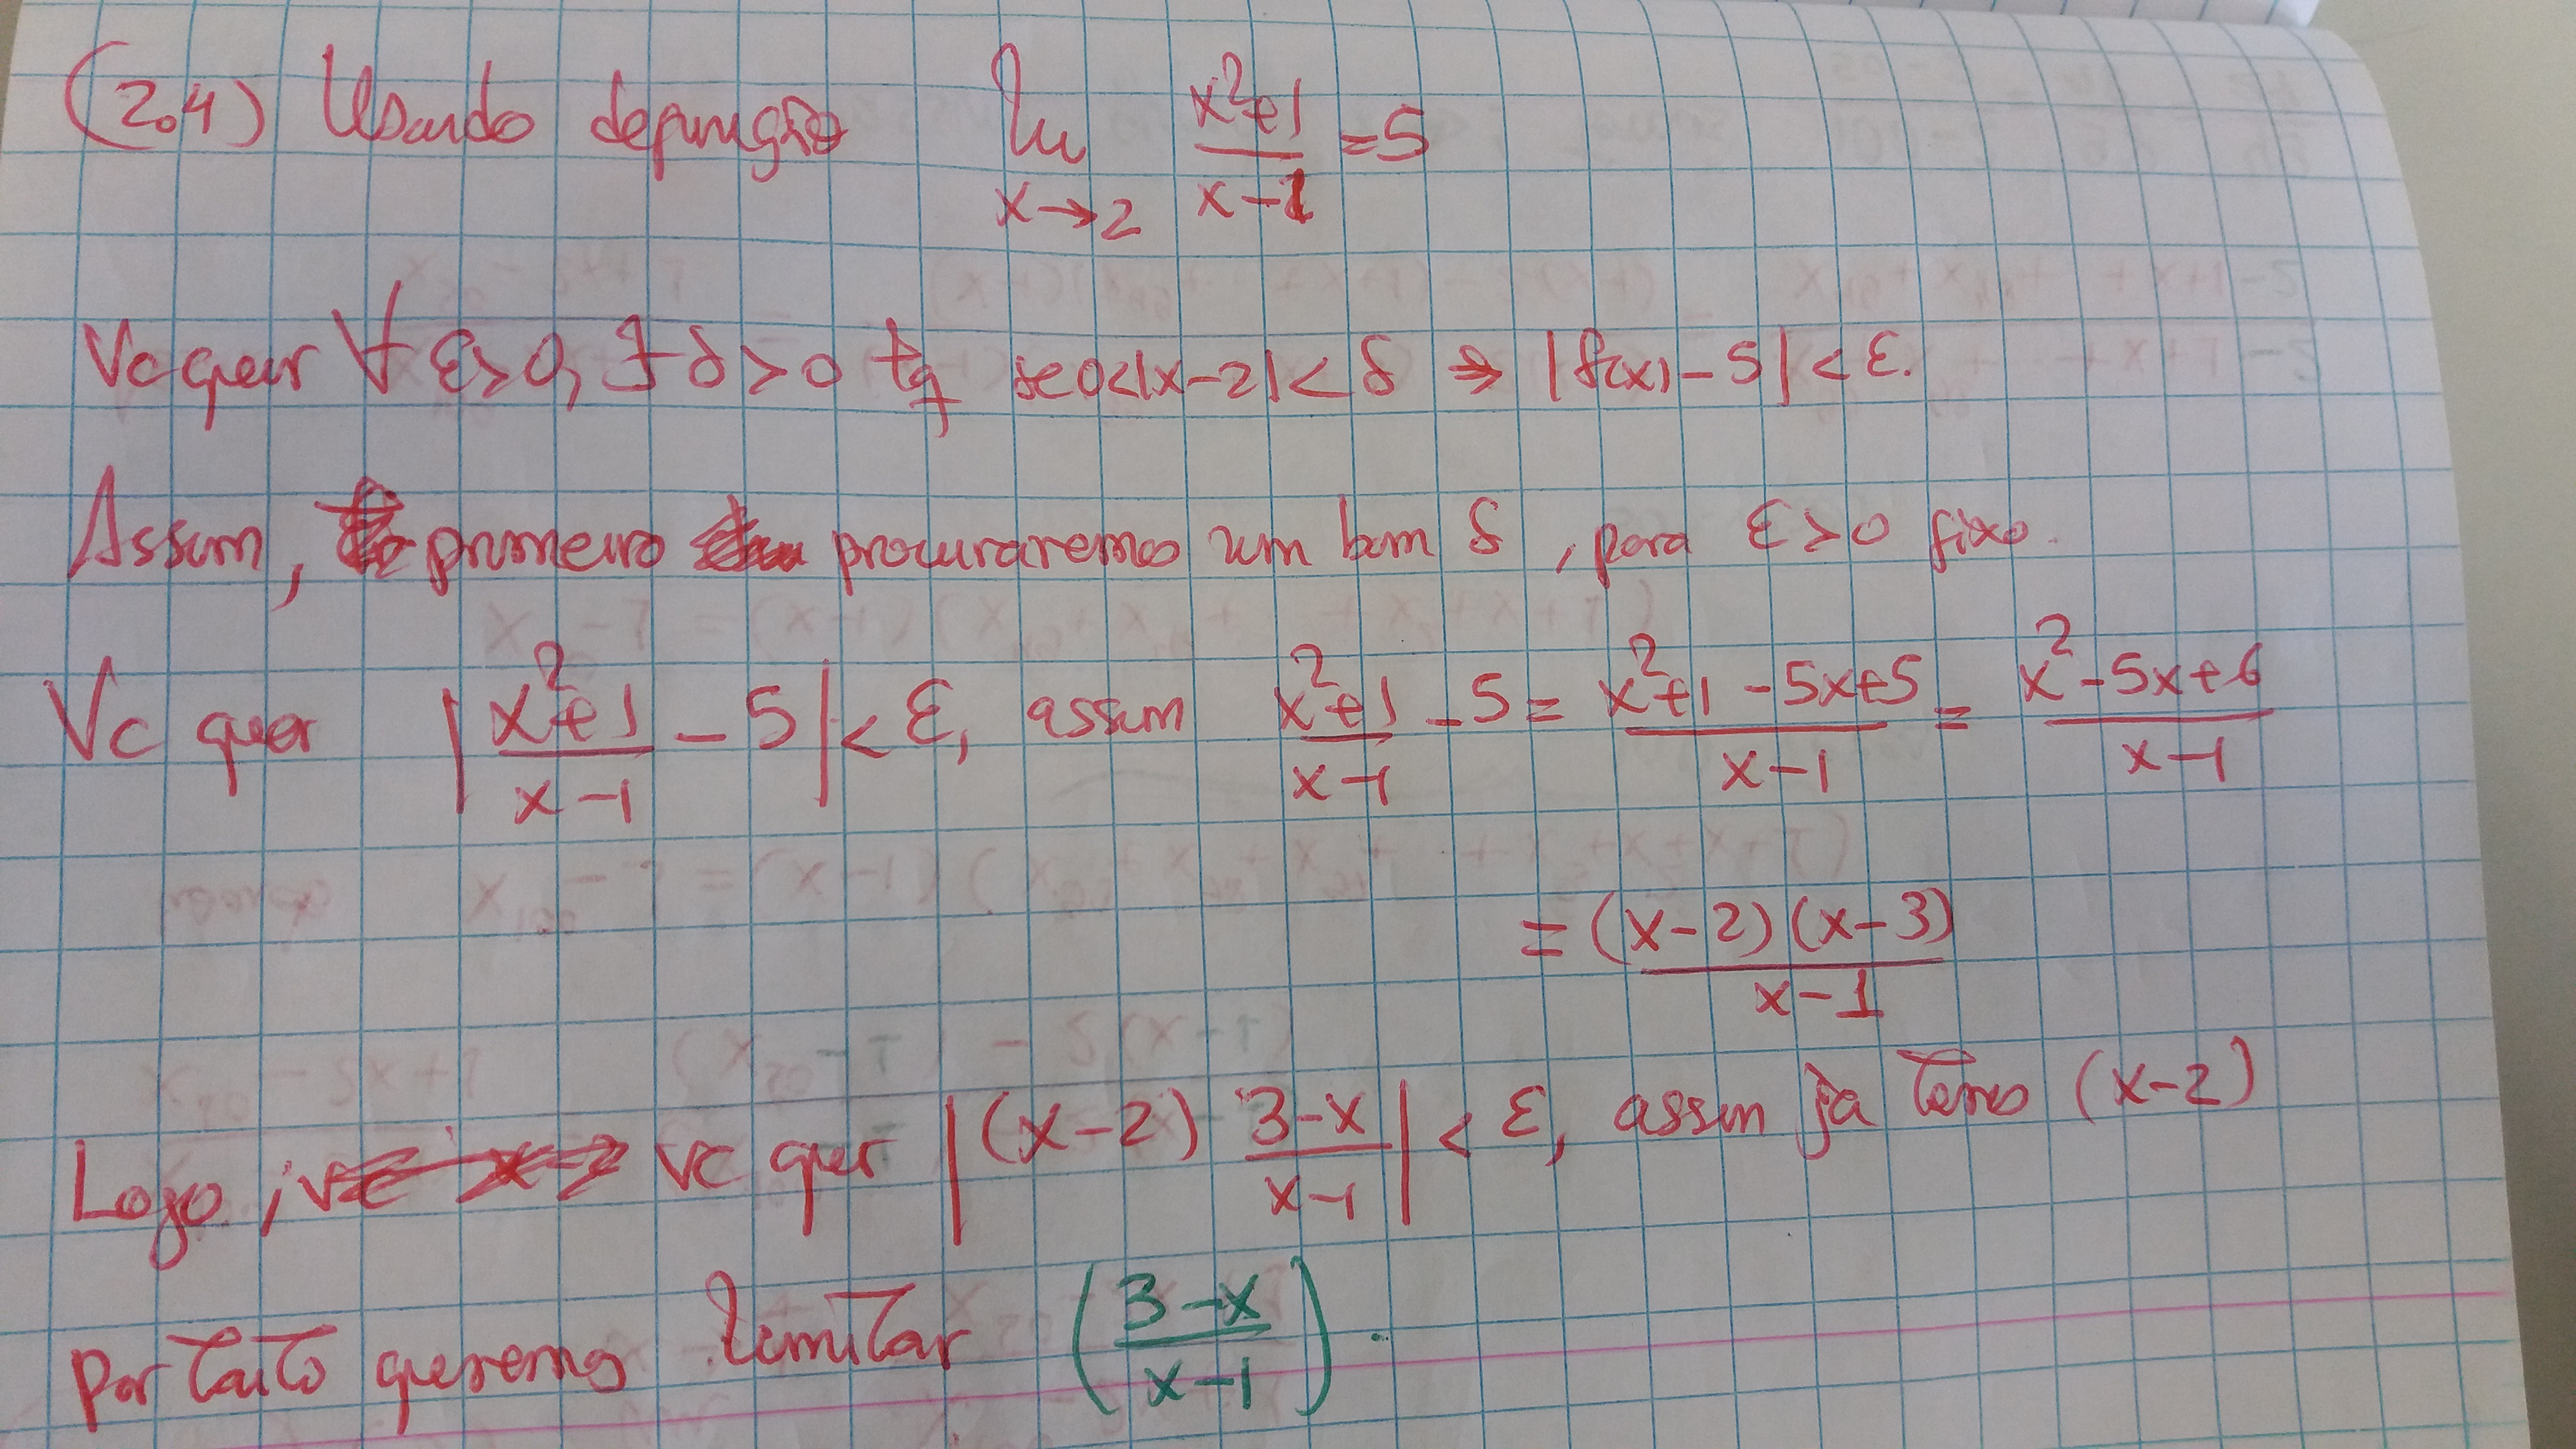 (2.4) Usando definição lim x→2 x²+1 / x-1 = 5
Vc quer ∀ ε>0, ∃ δ>0 tq se 0<|x-2|<δ ⇒ |f(x)-5|<ε.
Assim, primeiro procuraremos um bom δ, para ε>0 fixo.
Vc quer |x²+1 / x-1 - 5| < ε, assim x²+1 / x-1 - 5 = x²+1-5x+5 / x-1 = x²-5x+6 / x-1
= (x-2)(x-3) / x-1
Logo, vc quer |(x-2) 3-x / x-1| < ε, assim já temos (x-2)
portanto queremos limitar (3-x / x-1).